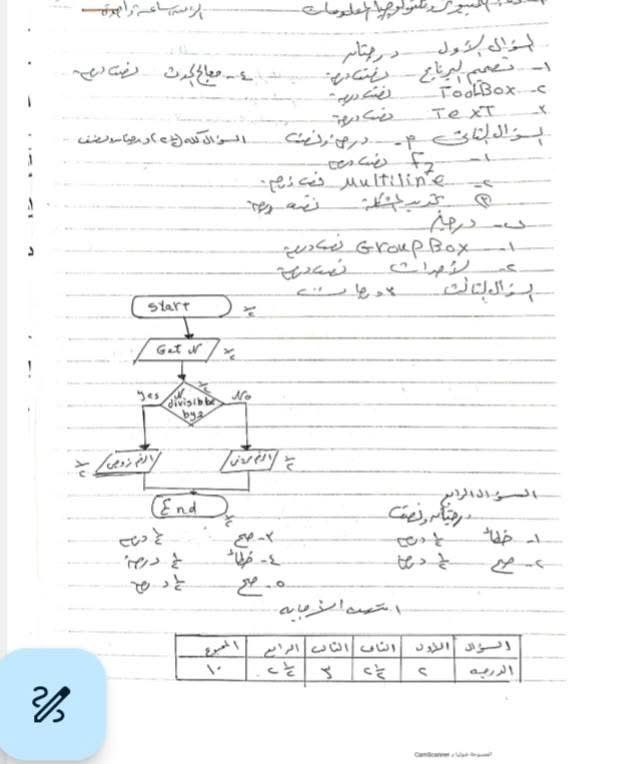 الزمن ساعة واحدة
السؤال الأول درجتان
١- تصميم البرنامج نصف درجة ٤- معالج الحدث نصف درجة
٢- ToolBox نصف درجة
٣- TexT نصف درجة
السؤال الثاني م- درجة ونصف
١- F7 نصف درجة
٢- Multiline نصف درجة
٣ تحديد المشكلة نصف درجة
ب- درجة
١- GroupBox نصف درجة
٢- الأحداث نصف درجة
السؤال الثالث ٣ درجات
Start ½
Get N ½
½
Yes N divisible by 2 No
½ الرقم زوجي الرقم فردي ½
End ½
السؤال الرابع
درجتان ونصف
١- خطأ ½ درجة ٣- صح ½ درجة
٢- صح ½ درجة ٤- خطأ ½ درجة
٥- صح ½ درجة
انتهت الإجابة
السؤال الأول الثاني الثالث الرابع المجموع
الدرجة ٢ ٢½ ٣ ٢½ ١٠
الممسوحة ضوئيا بـ CamScanner